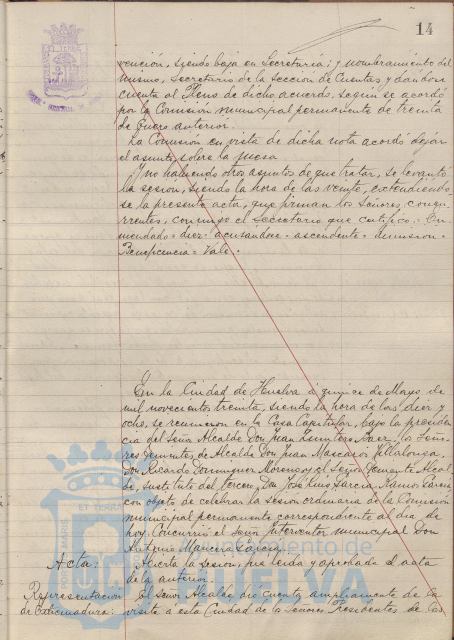 14
vención, siendo baja en Secretaria; y nombramiento del
mismo, Secretario de la Sección de Cuentas y dandose
cuenta al Pleno de dicho acuerdo, según se acordó
por la Comisión municipal permanente de treinta
de Enero anterior.
La Comisión en vista de dicha nota acordó dejar
el asunto sobre la mesa.
Y no habiendo otros asuntos de que tratar, se levantó
la sesion, siendo la hora de las veinte, extendiendo
se la presente acta, que firman los Señores concu-
rrentes, conmigo el Secretario que certifico. En-
mendado = diez = acusandose = ascendente = dimision =
Beneficencia = Vale.
En la Ciudad de Huelva á quince de Mayo de
mil novecientos treinta, siendo la hora de las diez y
ocho, se reunieron en la Casa Capitular, bajo la presiden
cia del Señor Alcalde Don Juan Quintero Baez, los Seño-
res Tenientes de Alcalde Don Juan Mascaros Villalonga,
Don Ricardo Dominguez Moreno, y el Señor Teniente Alcal
de, sustituto del Tercero, Don José Luis Garcia Ramos Garcia
con objeto de celebrar la sesion ordinaria de la Comisión
municipal permanente correspondiente al dia de
hoy. Concurrió el Señor Interventor municipal Don
Antonio Mancera Garcia.
Acta: Abierta la sesion, fué leida y aprobada el acta
de la anterior.
Representación El Señor Alcalde dió cuenta ampliamente de la
de Extremadura: visita á esta Ciudad de los Señores Presidentes de las
ET TERRAE
Ayuntamiento de
HUELVA